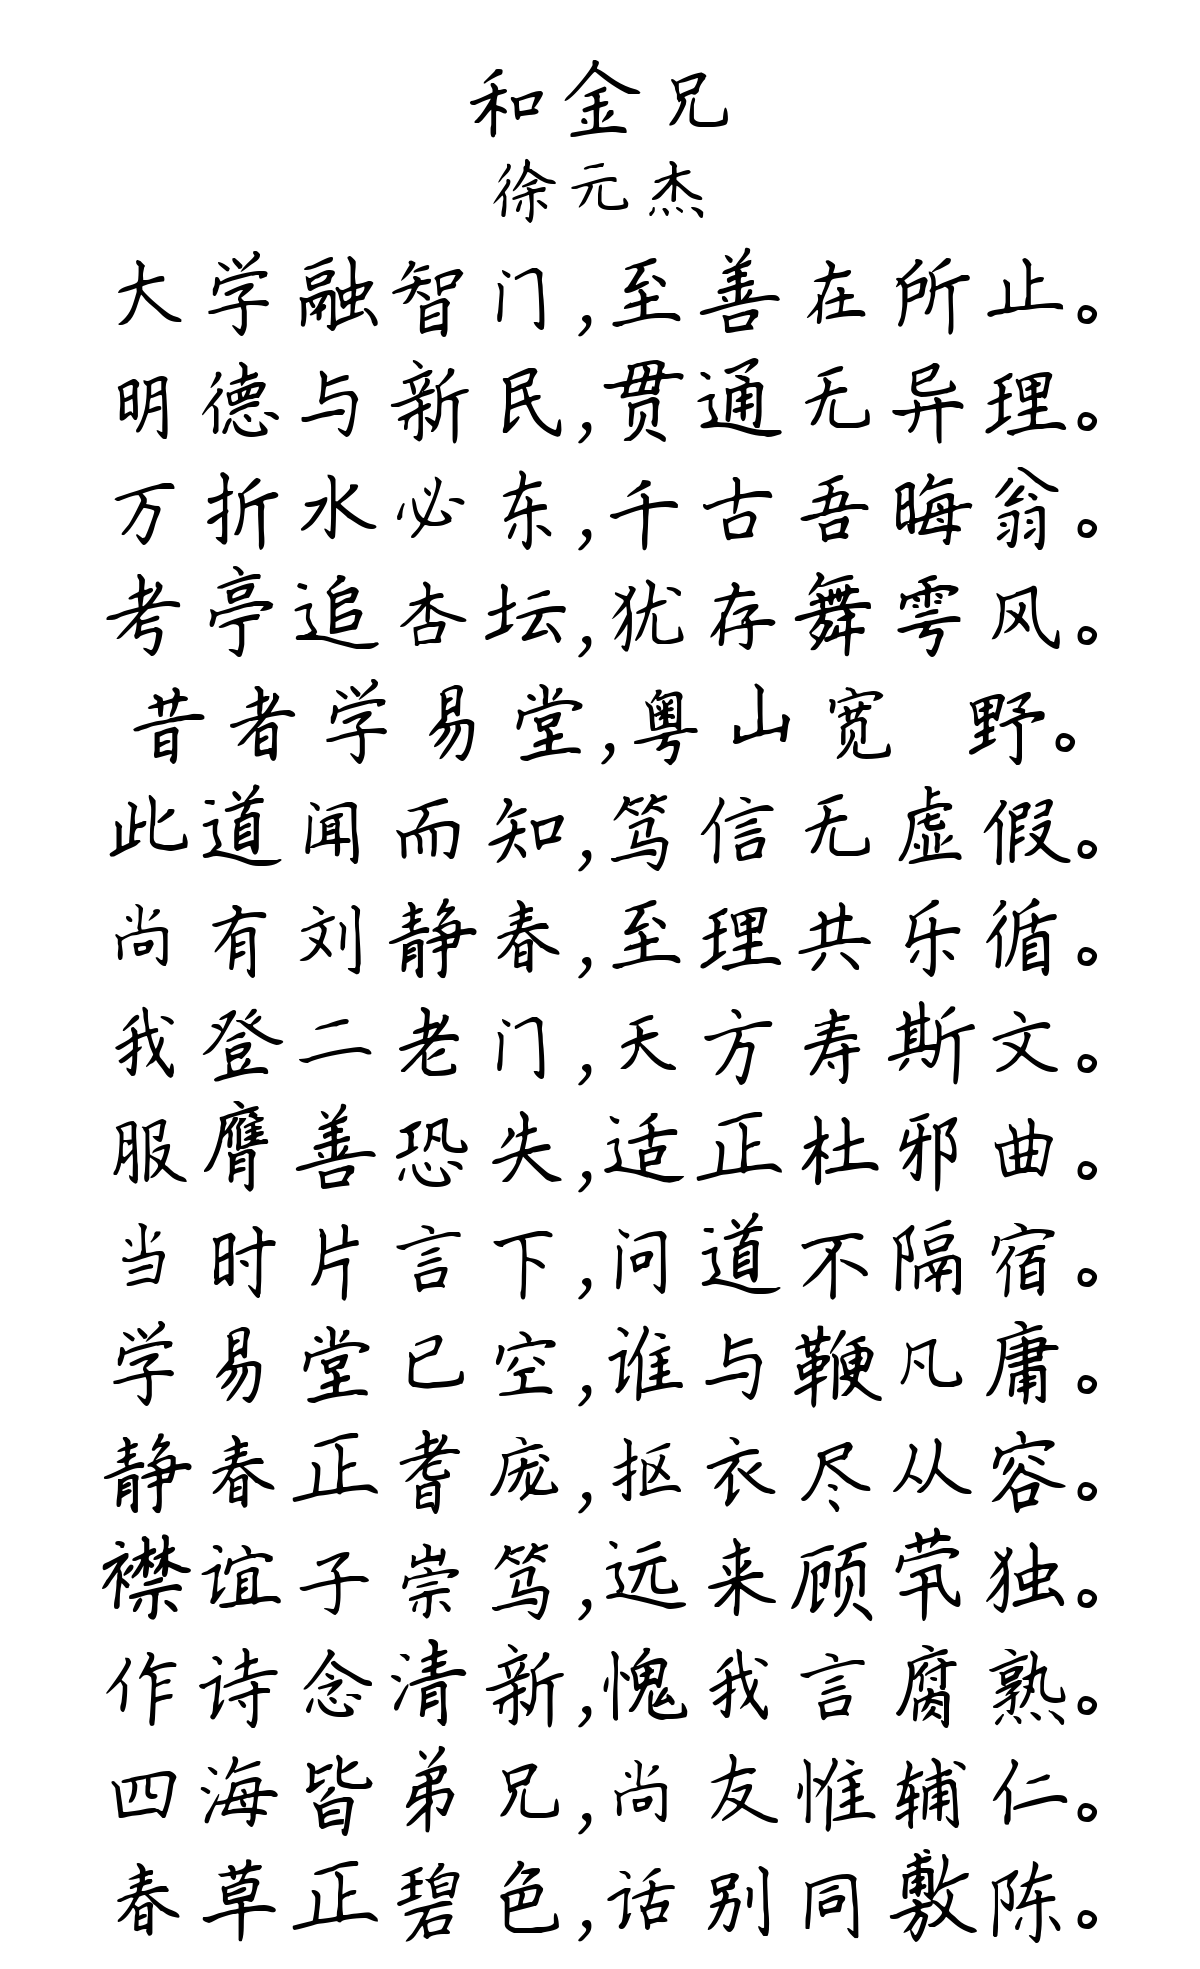 和金兄
徐元杰
大学融智门,至善在所止。
明德与新民,贯通无异理。
万折水必东,千古吾晦翁。
考亭追杏坛,犹存舞雩风。
昔者学易堂,粤山宽 野。
此道闻而知,笃信无虚假。
尚有刘静春,至理共乐循。
我登二老门,天方寿斯文。
服膺善恐失,适正杜邪曲。
当时片言下,问道不隔宿。
学易堂已空,谁与鞭凡庸。
静春正耆庞,抠衣尽从容。
襟谊子崇笃,远来顾茕独。
作诗念清新,愧我言腐熟。
四海皆弟兄,尚友惟辅仁。
春草正碧色,话别同敷陈。